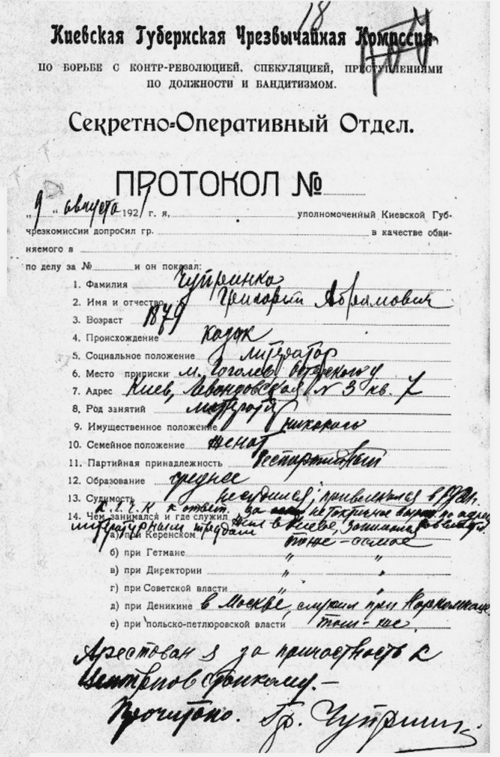 18
Киевская Губернская Чрезвычайная Комиссия
ПО БОРЬБЕ С КОНТР-РЕВОЛЮЦИЕЙ, СПЕКУЛЯЦИЕЙ, ПРЕСТУПЛЕНИЯМИ
ПО ДОЛЖНОСТИ И БАНДИТИЗМОМ.
Секретно-Оперативный Отдел.
ПРОТОКОЛ №
„9 „ августа 1921 г. я, уполномоченный Киевской Губ-
чрезкомиссии допросил гр. в качестве обви-
няемого в
по делу за № и он показал:
1. Фамилия Чупринка
2. Имя и отчество Григорий Абрамович
3. Возраст 1879
4. Происхождение козак
5. Социальное положение литератор
6. Место приписки м. Гоголев
7. Адрес Киев, № 3 кв. 7
8. Род занятий литератор
9. Имущественное положение никакого
10. Семейное положение женат
11. Партийная принадлежность беспартийный
12. Образование среднее
13. Судимость не судился, привлекался в
14. Чем занимался и где служил
литературным трудом
а) при Керенском жил в Киеве, занимался
б) при Гетмане то же самое
в) при Директории „ „
г) при Советской власти „ „
д) при Деникине в Москве, служил при
е) при польско-петлюровской власти то же.
Арестован я за причастность к
Центрповстанкому.—
Прочитано. Гр. Чупринка